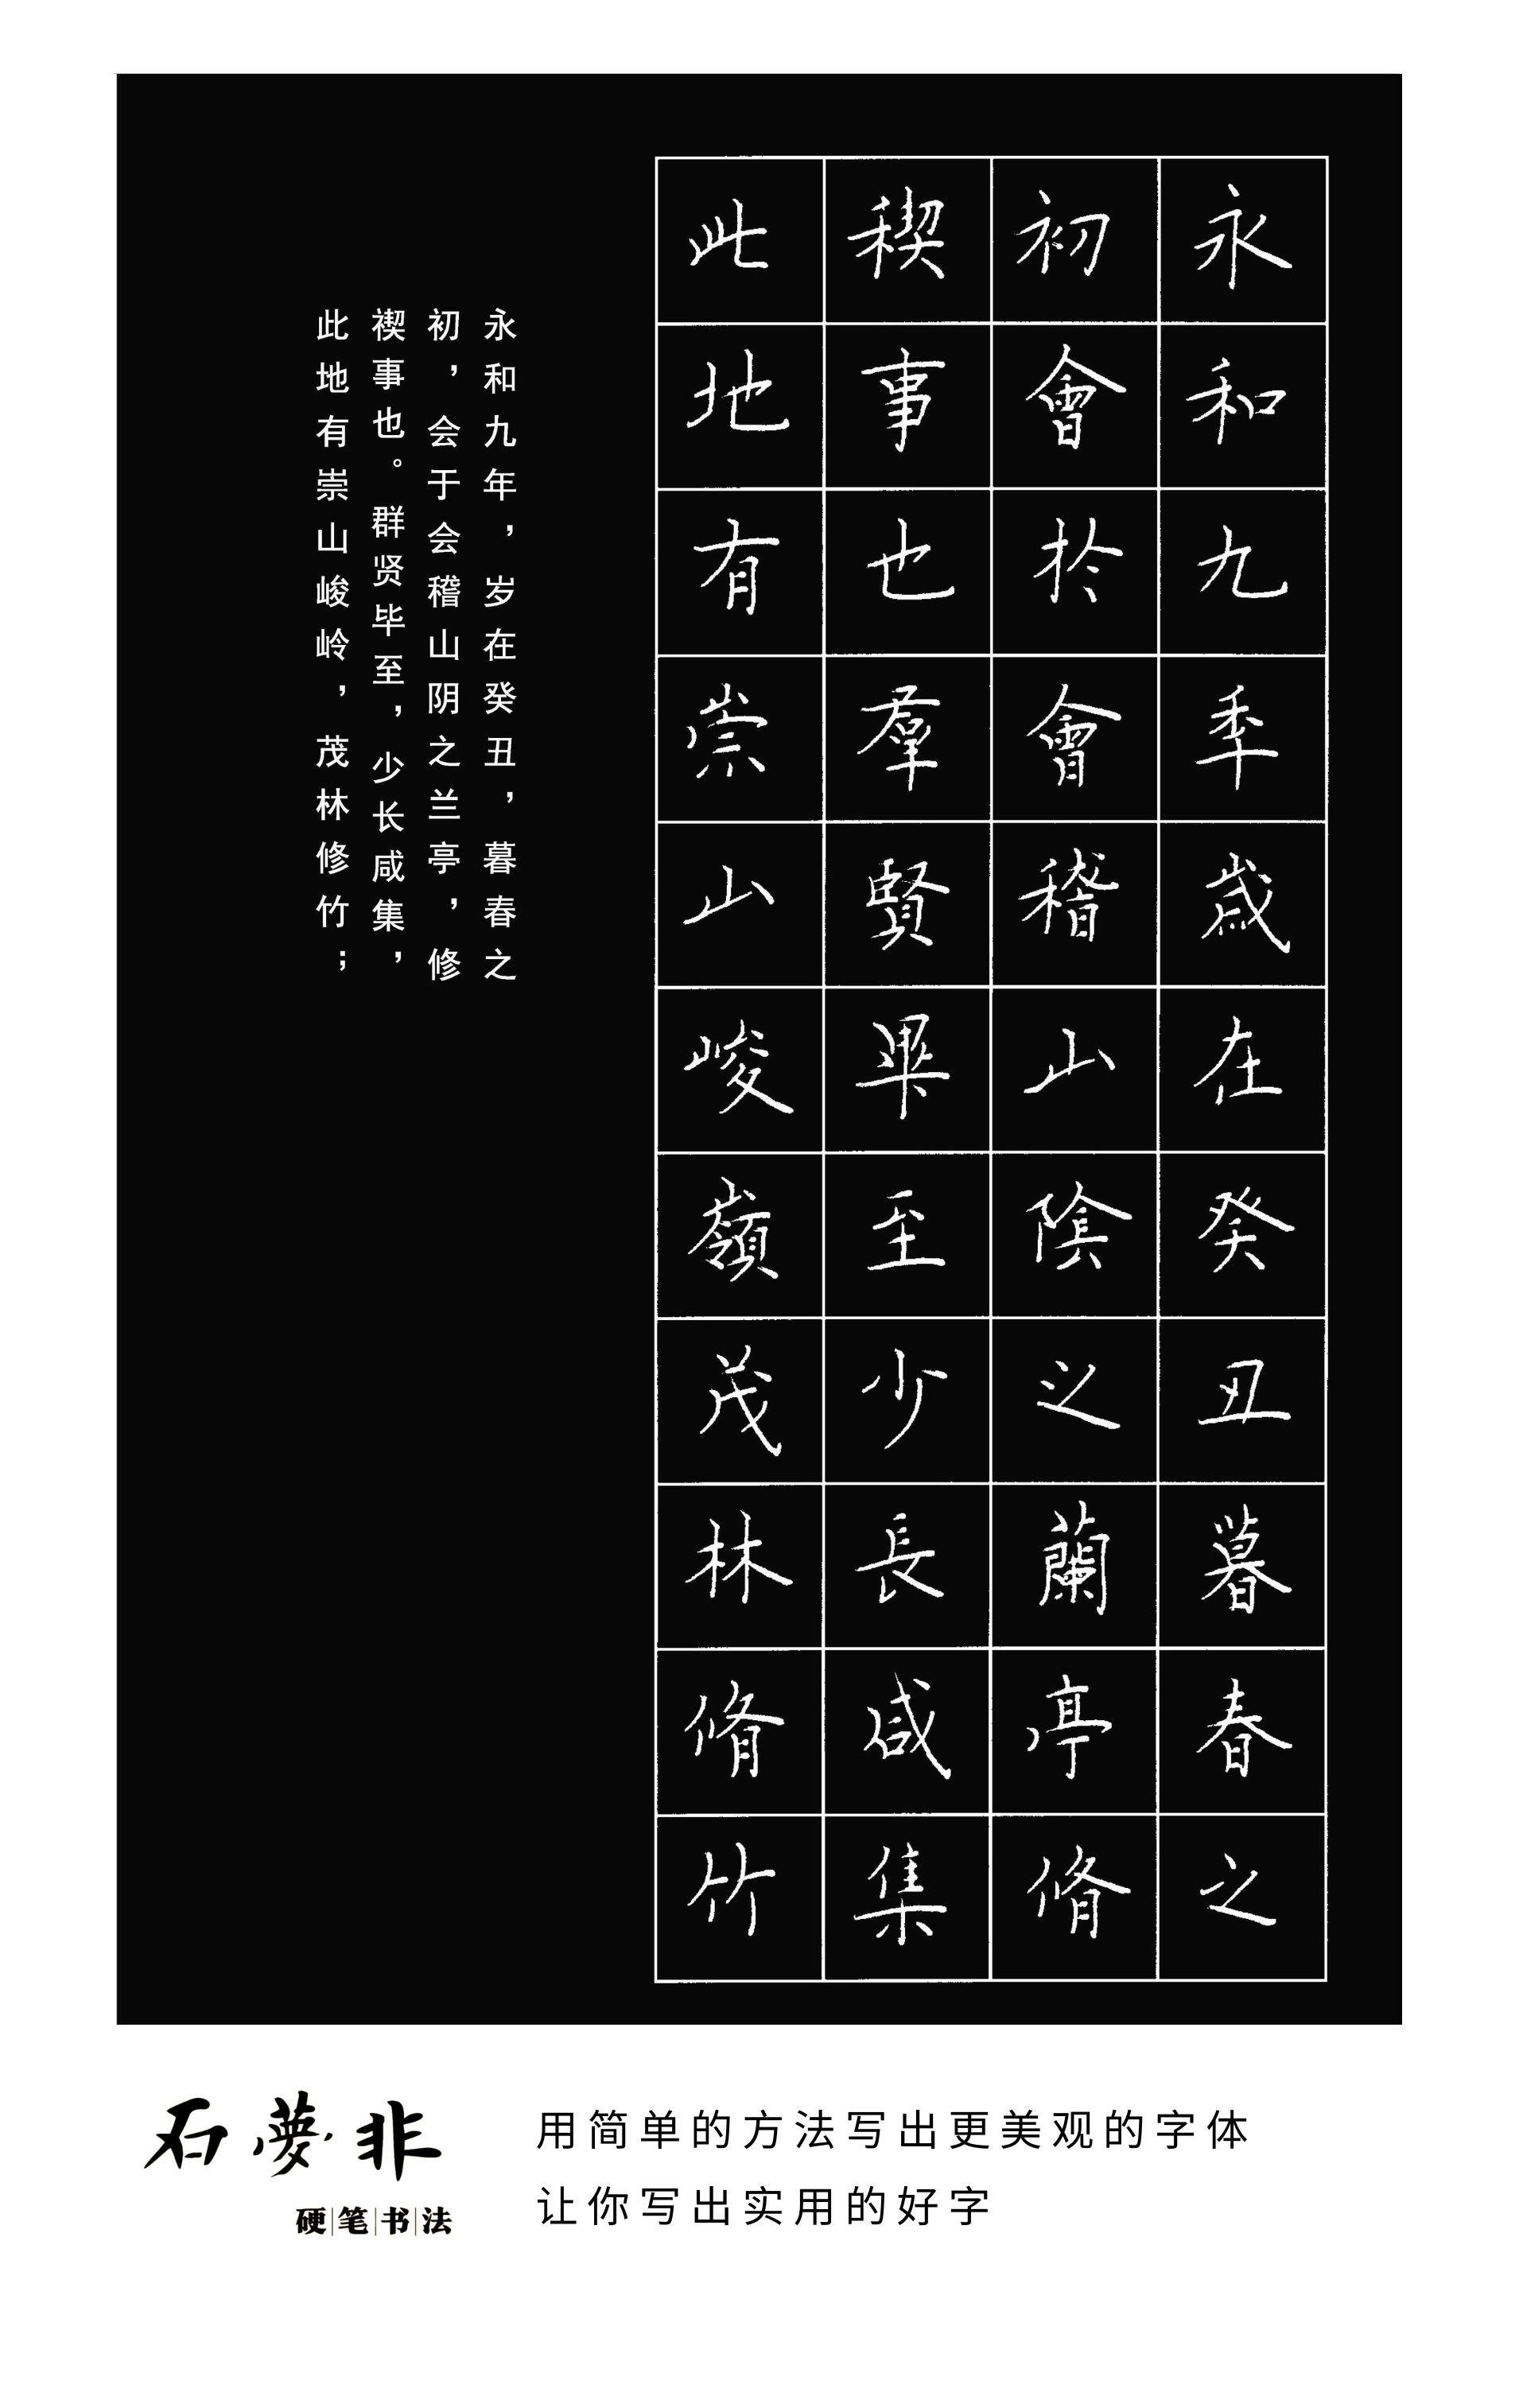 永和九年歲在癸丑暮春之
初會於會稽山陰之蘭亭脩
稧事也羣賢畢至少長咸集
此地有崇山峻嶺茂林脩竹
永和九年，岁在癸丑，暮春之
初，会于会稽山阴之兰亭，修
禊事也。群贤毕至，少长咸集，
此地有崇山峻岭，茂林修竹；
石夢非
硬笔书法
用简单的方法写出更美观的字体
让你写出实用的好字